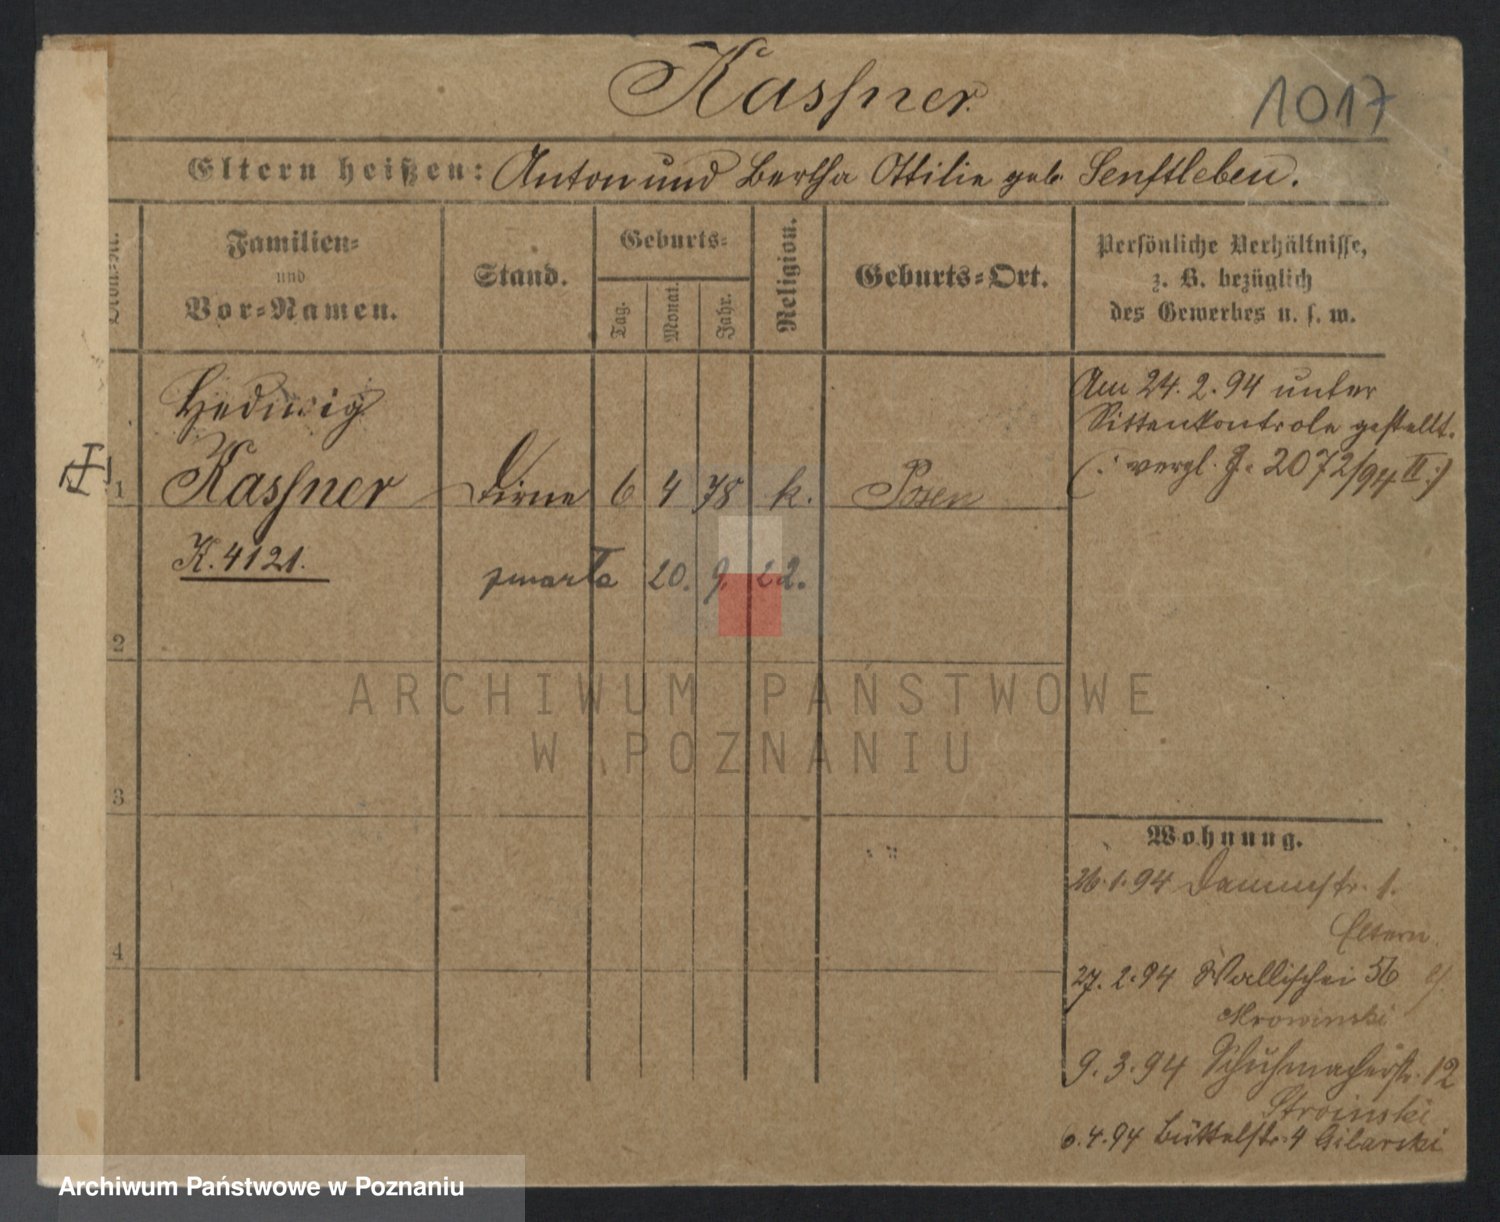 Kassner.
1017
Eltern heißen: Anton und Bertha Ottilie geb. Senftleben.
Familien=
und
Vor=Namen.
Stand.
Geburts=
Tag.
Monat.
Jahr.
Religion.
Geburts=Ort.
Persönliche Verhältnisse,
z. B. bezüglich
des Gewerbes u. s. w.
Hedwig
Kassner
1
Dirne 6 4 78 k. Posen
K. 4121.
zmarła 20. 9. 22.
Am 24. 2. 94 unter
Sittenkontrole gestellt.
(: vergl. J. 2072/94 II :)
2
3
4
Wohnung.
26. 1. 94 Dammstr. 1.
Eltern.
27. 2. 94 Wallischei 56
Mrowinski
9. 3. 94 Schuhmacherstr. 12
Stroinski
6. 4. 94 Büttelstr. 4 Gilarski
ARCHIWUM PAŃSTWOWE
W POZNANIU
Archiwum Państwowe w Poznaniu